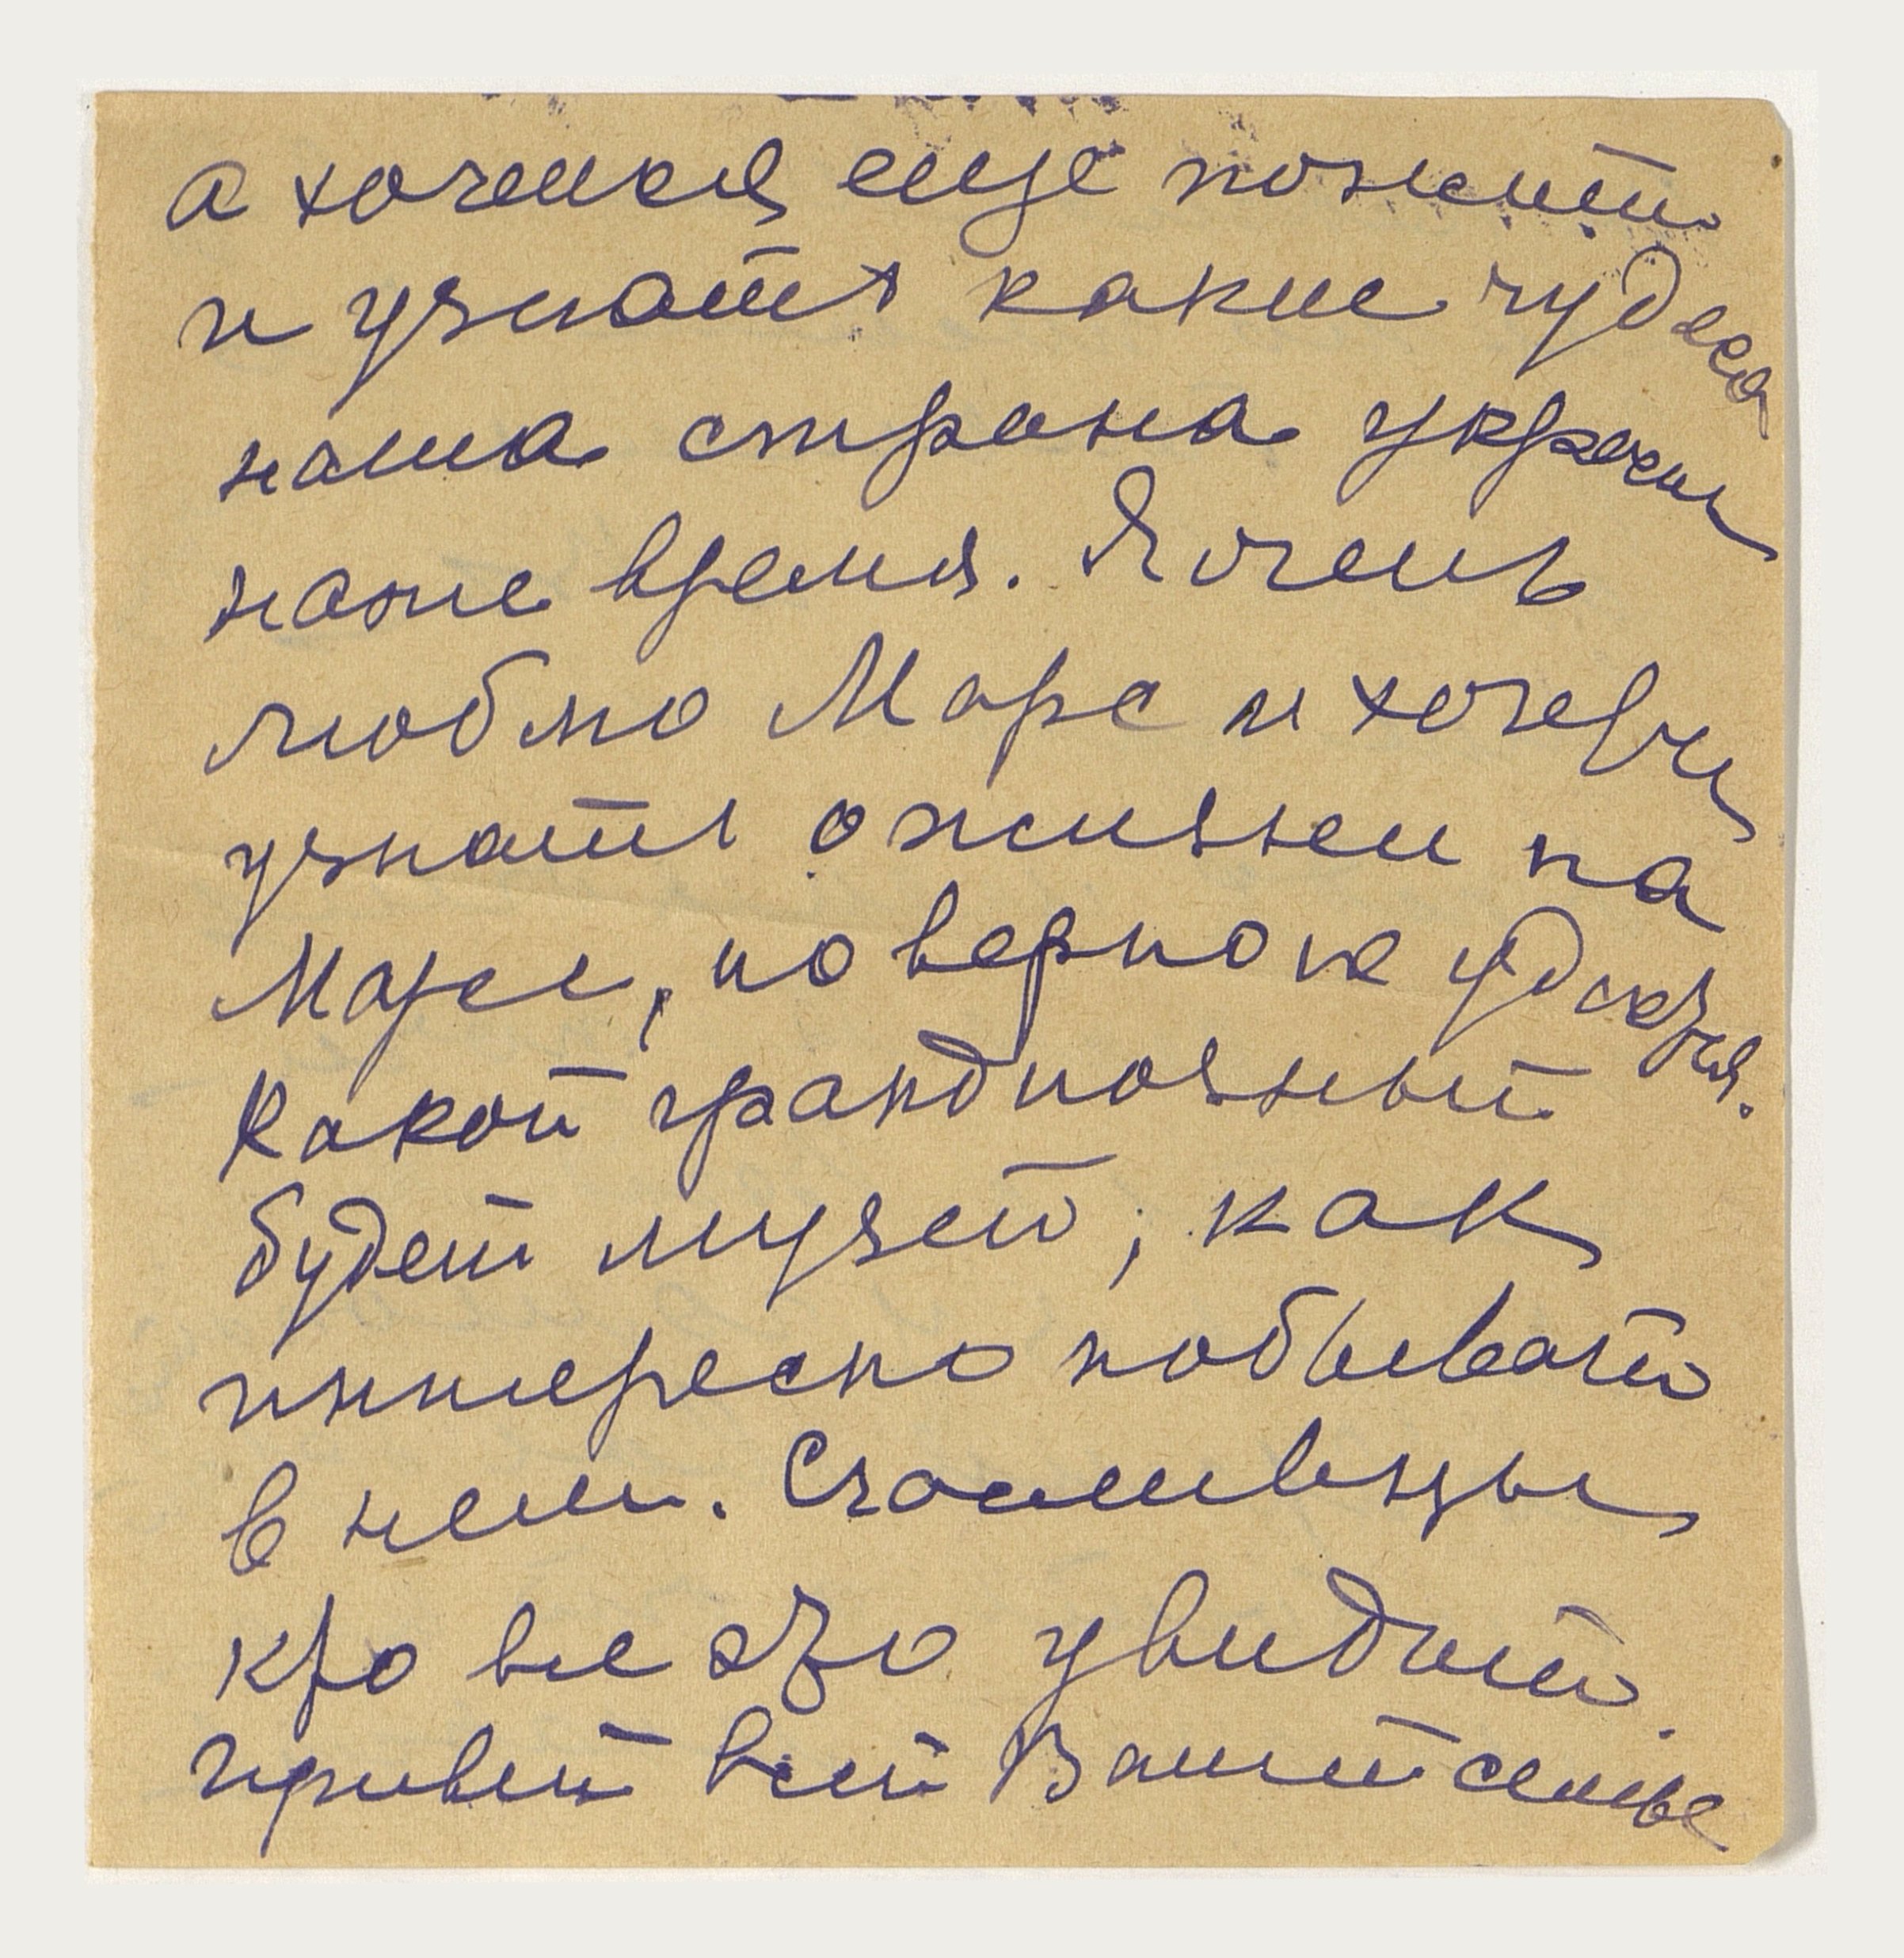 а хочется еще пожить
и узнать какие чудеса
наша страна украсит
наше время. Я очень
люблю Марс и хочется
узнать о жизни на
Марсе, но верно не удастся.
Какой грандиозный
будет музей, как
интересно побывать
в нем. Счастливцы
кто все это увидит.
привет всей Вашей семье